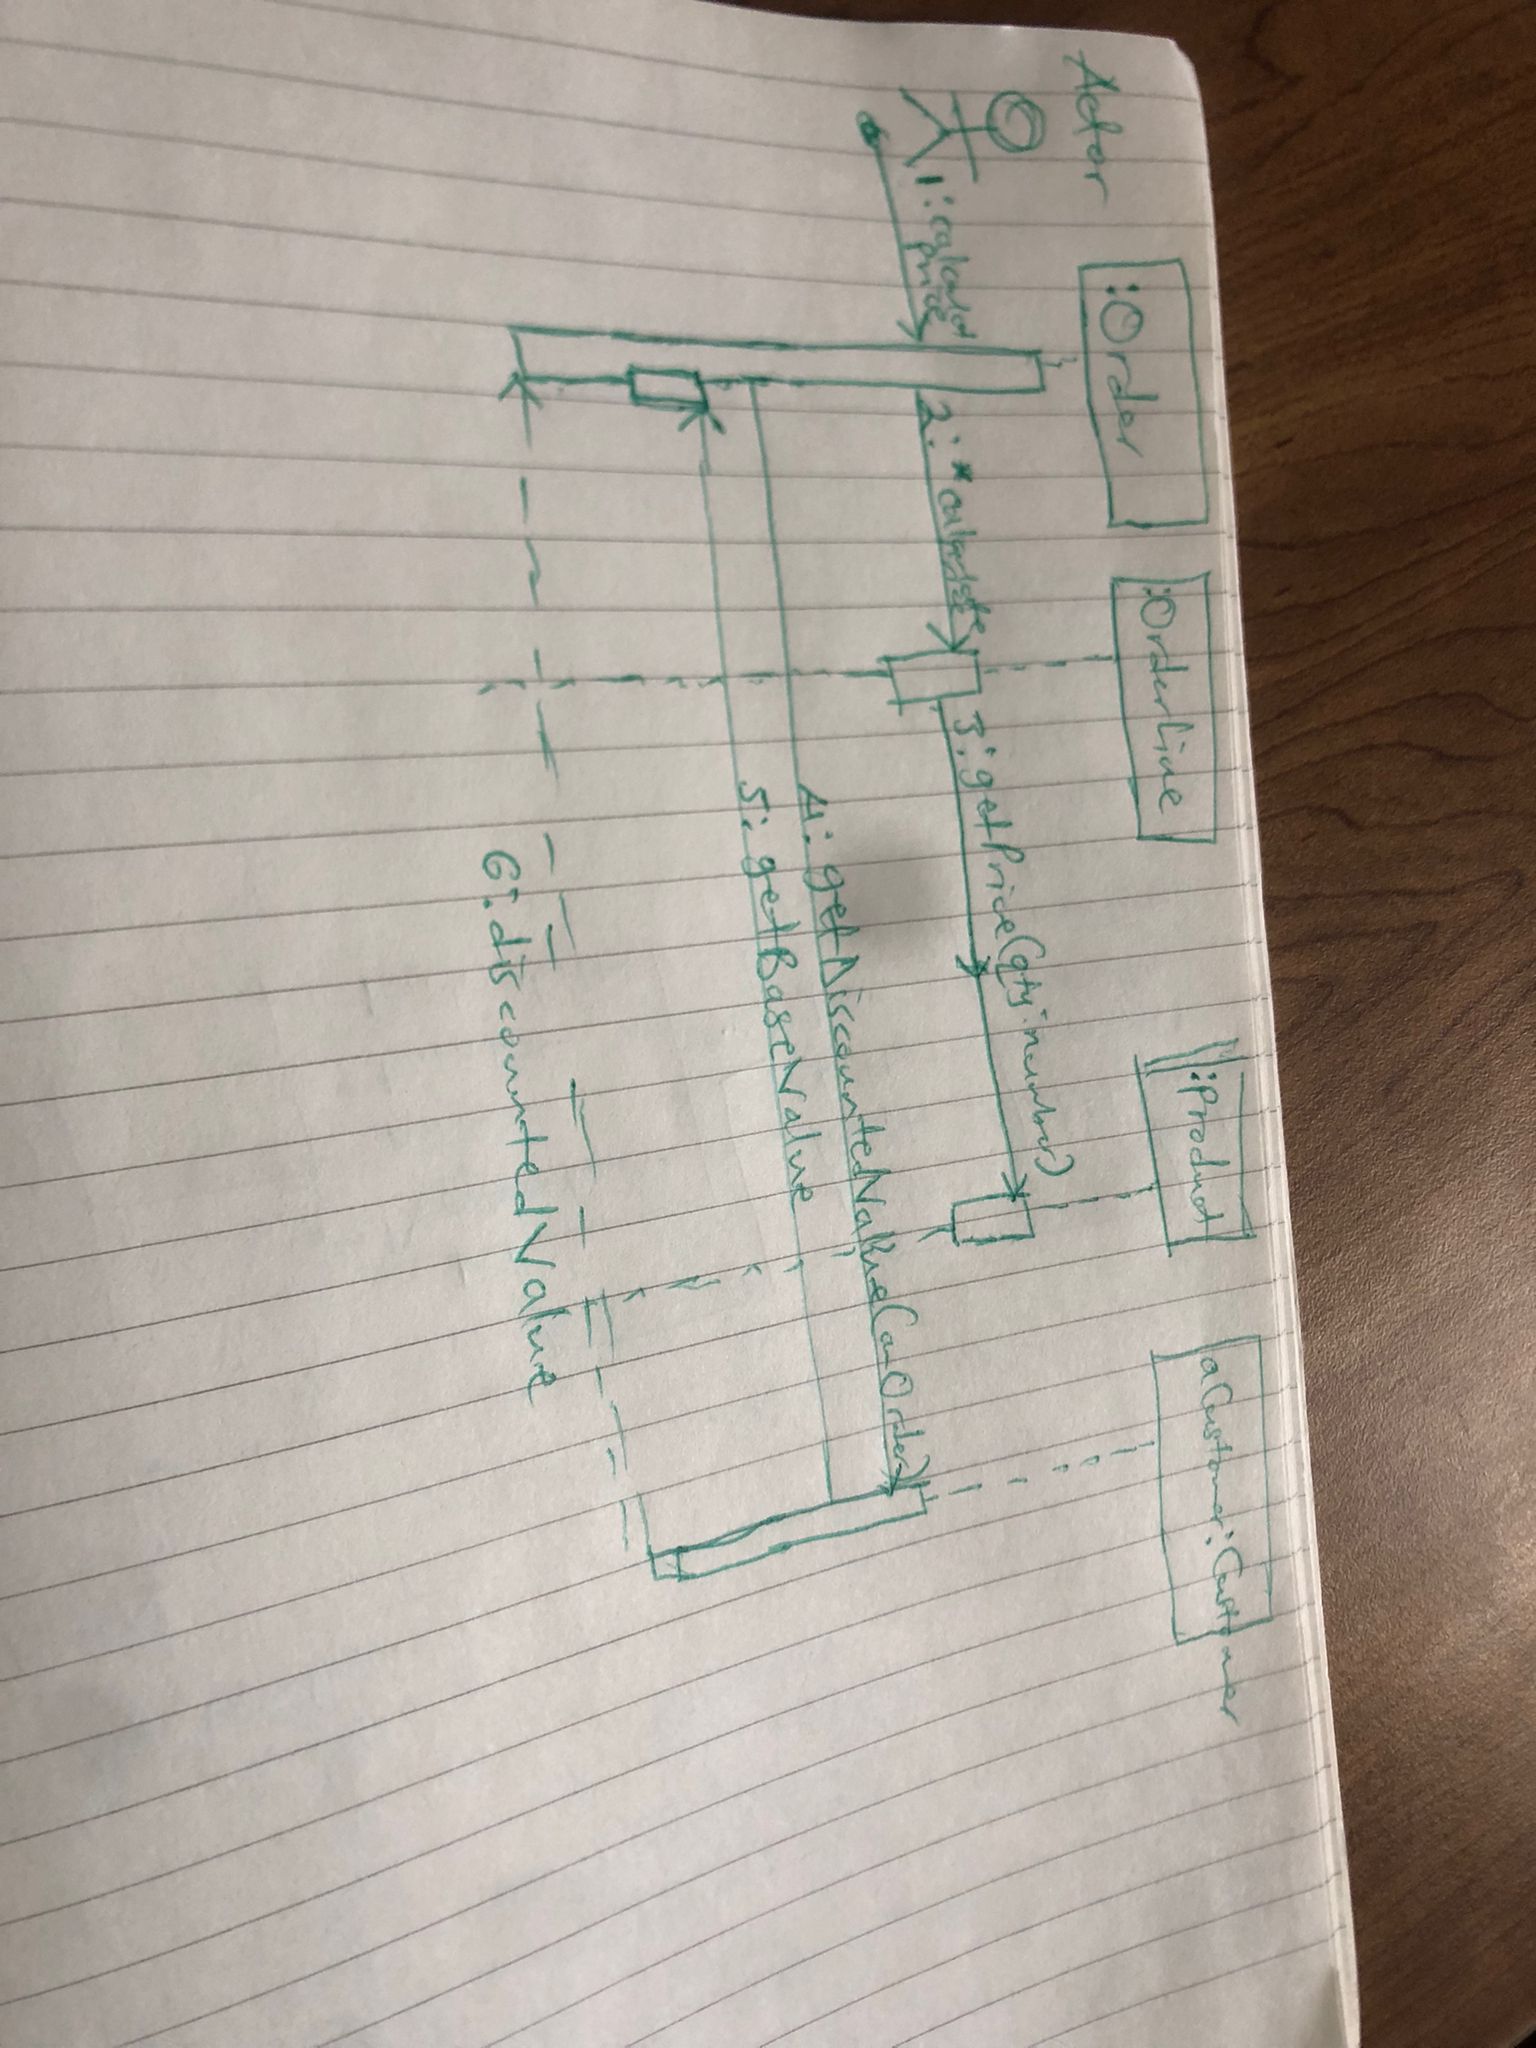 Actor
:Order
:Orderline
:Product
aCustomer:Customer
1:calculat
price
2:*calculate
3:getPrice(qty:number)
4:getDiscountedValue(anOrder)
5:getBaseValue
6:discountedValue